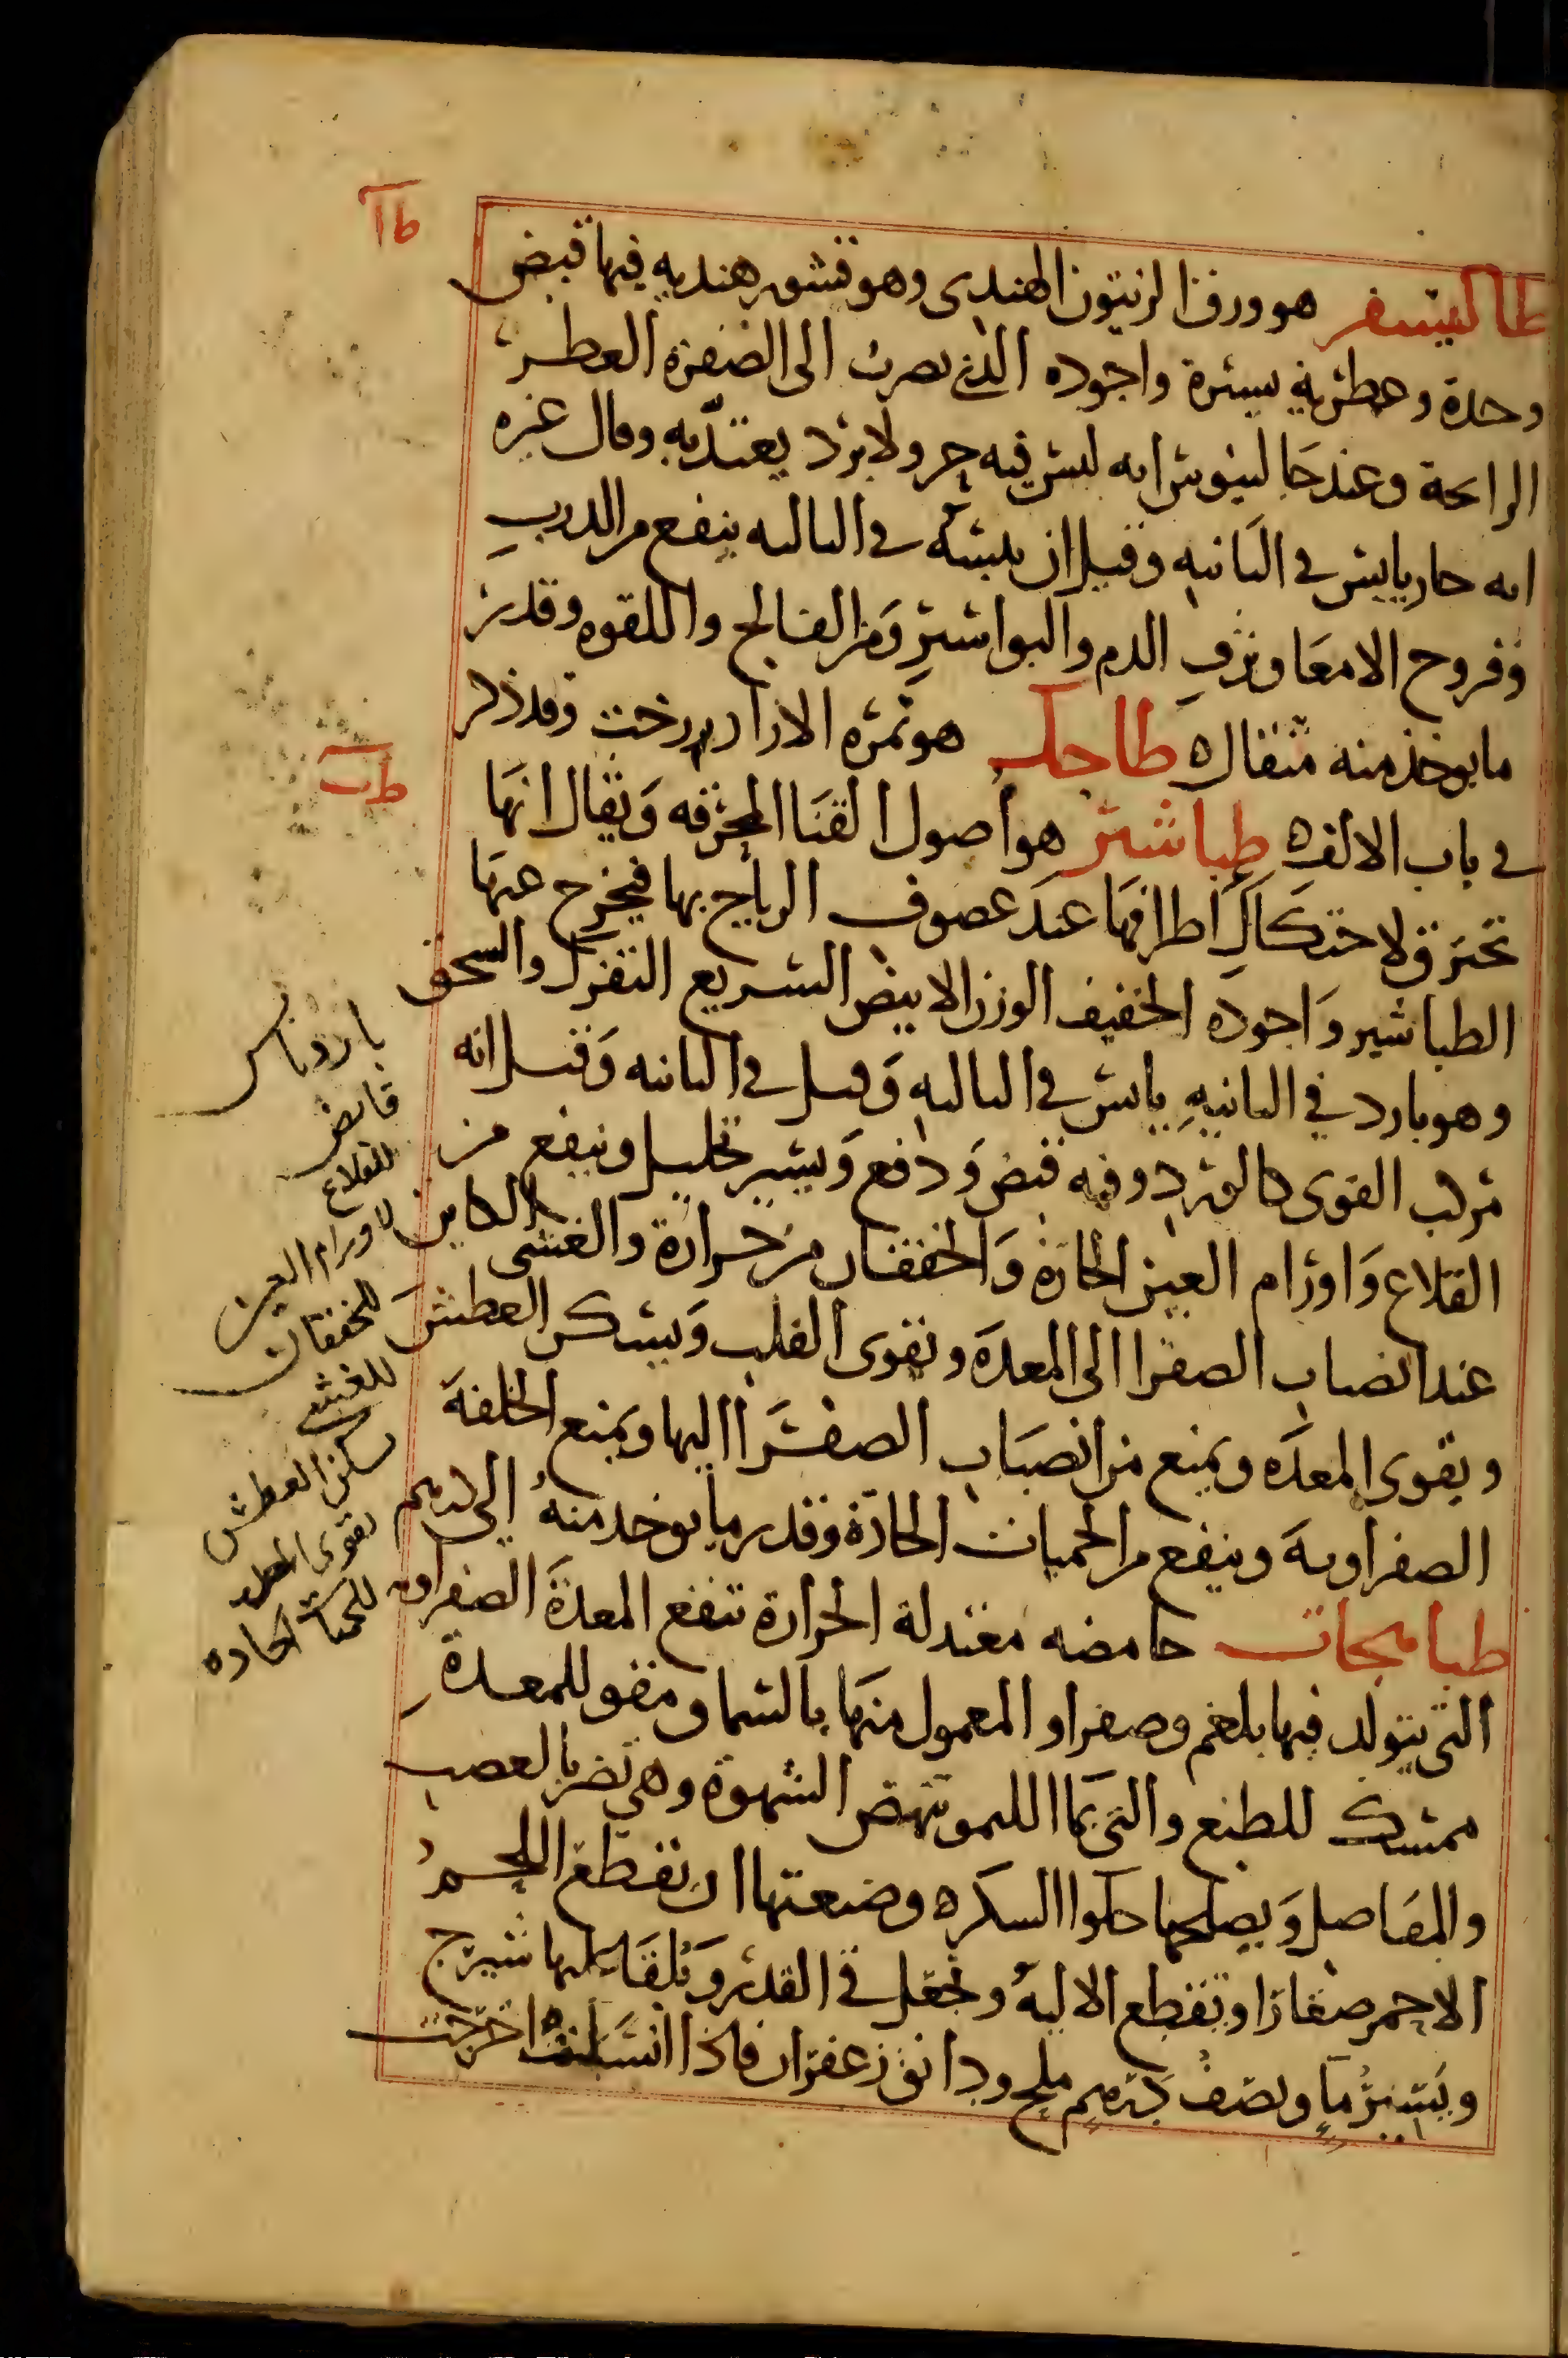 طا
طاليسفر هو ورق الزيتون الهندى وهو قشور هنديه فيها قبض
وحدة وعطرية يسيرة واجوده الذى يضرب الى الصفرة العطر
الرائحة وعند جالينوس انه ليس فيه حر ولا برد يعتد به وقال غيره
انه حار يابس في الثانيه وقيل ان يبسه في الثالثه ينفع من الدرب
وقروح الامعا ونزف الدم والبواسير ومن الفالج واللقوه وقدر
ما يوخذ منه مثقال ه طاحك هو ثمره الازاددرخت وقد ذكر
في باب الالف ه طباشير هو اصول القنا المحرقه ويقال انها
طب
تحترق لاحتكاك اطرافها عند عصوف الرياح بها فيخرج عنها
الطباشير واجوده الخفيف الوزن الابيض السريع التفرك والسحق
وهو بارد في الثانيه يابس في الثالثه وقيل في الثانيه وقيل انه
مركب القوى كالورد وفيه قبض ودفع ويسير تحليل وينفع من
القلاع واورام العين الحارة والخفقان من حرارة والغشى الكاين
عند انصباب الصفرا الى المعدة ويقوى القلب ويسكن العطش
ويقوى المعده ويمنع من انصباب الصفرا اليها ويمنع الخلفة
الصفراوية وينفع من الحميات الحادة وقدر ما يوخذ منه الى درهم
طباهجات حامضه معتدلة الحرارة تنفع المعدة الصفراويه
التى يتولد فيها بلغم وصفرا و المعمول منها بالسماق مقو للمعدة
ممسك للطبع والتى بما الليمو تنهض الشهوة وهى تضر بالعصب
والمفاصل ويصلحها حلوا السكر ه وصنعتها ان يقطع اللحم
الاحمر صغارا ويقطع الاليه وتجعل في القدر ويلقا عليها شيرج
ويسير ما ونصف درهم ملح ودانق زعفران فاذا انسلقت اخرجت
بارد يابس
قابض
للقلاع
لاورام العين
للخفقان
للغشى
يسكن العطش
يقوى المعده
للحميات الحاده